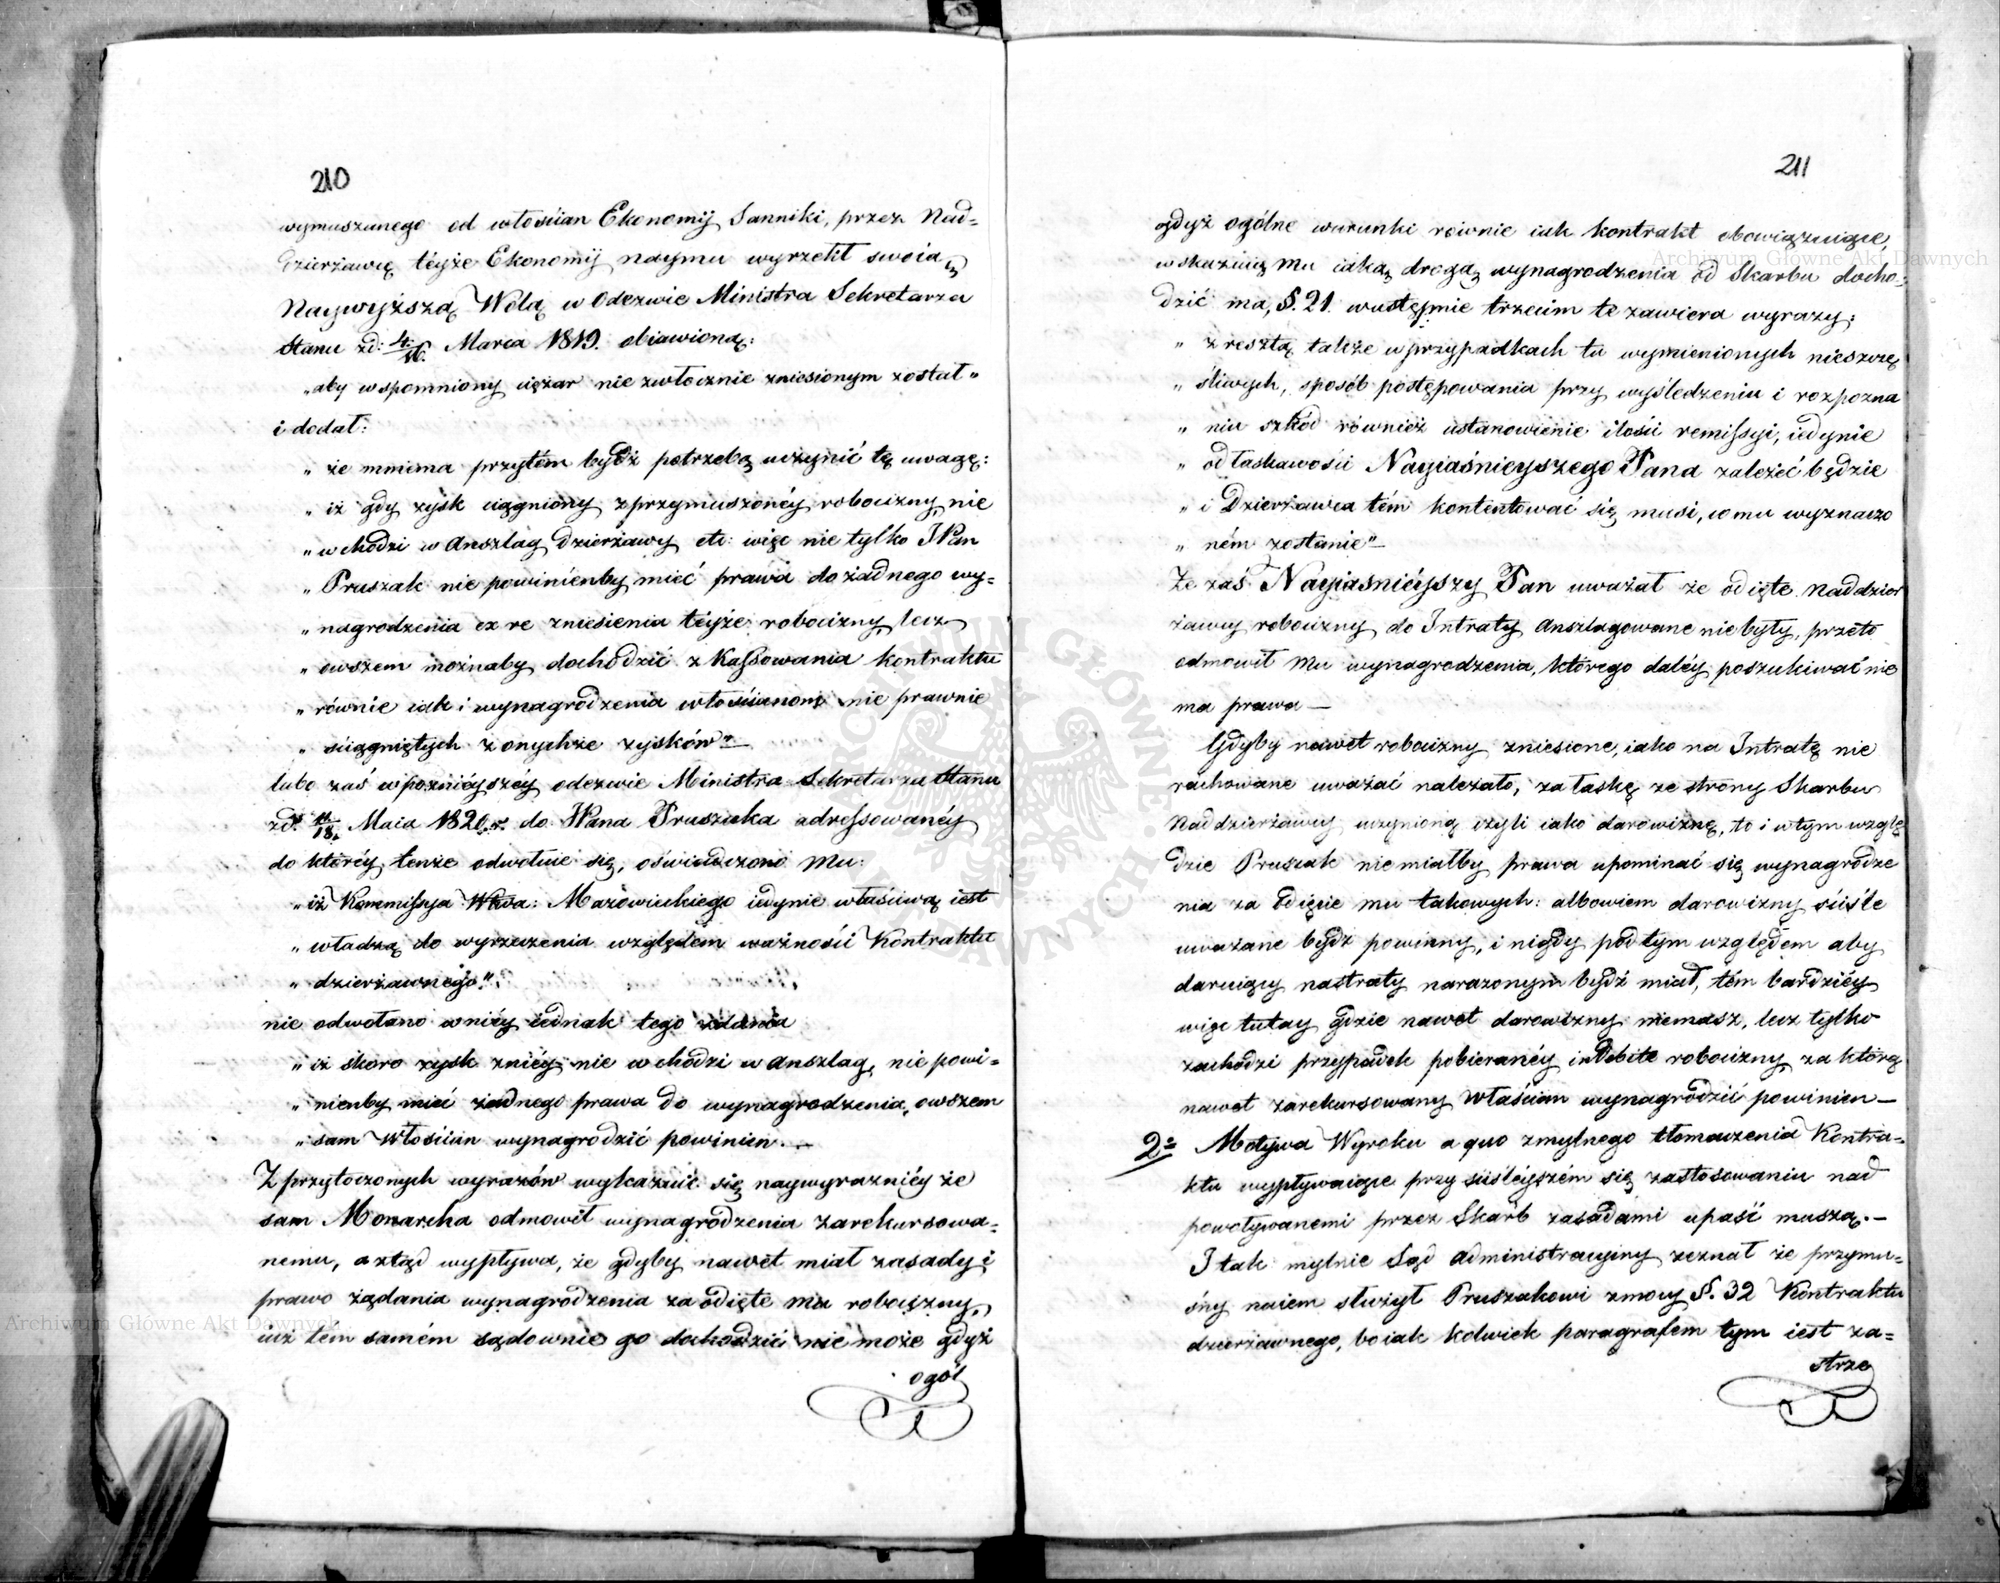 210
wymuszanego od włościan Ekonomij Sanniki, przez Nad-
dzierżawcę teyże Ekonomij naymu wyrzekł swoią
Naywyższą Wolą w Odezwie Ministra Sekretarza
Stanu zd: 4/16 Marca 1819. obiawioną:
„aby wspomniony ciężar niezwłocznie zniesionym został"
i dodał:
„ że mniema przytem bydź potrzebą uczynić tę uwagę:
„ iż gdy zysk ciągniony z przymuszonéy robocizny nie
„ wchodzi w Anszlag dzierżawy etc: więc nie tylko JPan
„ Pruszak nie powinienby mieć prawa do żadnego wy-
„ nagrodzenia ex re zniesienia teyże robocizny lecz
„ owszem możnaby dochodzić z Kassowania kontraktu
„ równie iak i wynagrodzenia włościanom nie prawnie
„ ściągniętych z onychże zysków"—
lubo zaś w poznieyszéy odezwie Ministra Sekretarza Stanu
zd: /18. Maia 1820. r. do JPana Pruszaka adressowanéy
do któréy tenże odwołuie się, oświadczono mu:
„ iż Kommissya Wdzka: Mazowieckiego iedynie właściwą iest
„ władzą do wyrzeczenia względem ważności Kontraktu
„ dzierżawnego."
nie odwołano w niéy iednak tego zdania
„ iż skoro zysk z niéy nie wchodzi w Anszlag, nie powi-
„ nienby mieć żadnego prawa do wynagrodzenia, owszem
„ sam Włościan wynagrodzić powinien.—
Z przytoczonych wyrazów wykazuie się naywyrazniéy że
sam Monarcha odmowił wynagrodzenia zarekursowa-
nemu, a ztąd wypływa, że gdyby nawet miał zasady i
prawo żądania wynagrodzenia za odięte mu robocizny,
iuż tem samém sądownie go dochodzić nie może gdyż
ogól
211
gdyż ogólne warunki równie iak kontrakt obowiązuiące,
wskazuią mu iaką drogą wynagrodzenia od Skarbu docho-
dzić ma, §. 21. w ustępie trzecim te zawiera wyrazy:
„ zresztą także w przypadkach tu wymienionych nieszczę
„ śliwych, sposób postępowania przy wyśledzeniu i rozpozna
„ niu szkód również ustanowienie ilości remissyi, iedynie
„ od łaskawości Nayiaśnieyszego Pana zależeć będzie
„ i Dzierżawca tém kontentować się musi, co mu wyznaczo
„ ném zostanie"—
Że zaś Nayiaśniéyszy Pan uważał że odięte Naddzier
żawcy robocizny do Intraty Anszlagowane nie były, przeto
odmowił mu wynagrodzenia, którego daléy poszukiwać nie
ma prawa—
Gdyby nawet robocizny zniesione, iako na Intratę nie
rachowane uważać należało, za łaskę ze strony Skarbu
Naddzierżawcy uczynioną czyli iako darowiznę, to i w tym wzglę
dzie Pruszak nie miałby prawa upominać się wynagrodze
nia za odięcie mu takowych: albowiem darowizny ściśle
uważane bydź powinny, i nigdy pod tym względem aby
daruiący na straty narażonym bydź miał, tém bardziéy
więc tutay gdzie nawet darowizny niemasz, lecz tylko
zachodzi przypadek pobieranéy indebite robocizny za którą
nawet zarekursowany Włościan wynagrodzić powinien—
2o Motywa Wyroku a quo z mylnego tłomaczenia Kontra-
ktu wypływaiące przy ściśléyszém się zastosowaniu nad
powoływanemi przez Skarb zasadami upaść muszą.—
I tak mylnie Sąd Administracyiny zeznał że przymu-
śny naiem służył Pruszakowi z mocy §. 32 Kontraktu
dzierżawnego, bo iak kolwiek paragrafem tym iest za-
strze
Archiwum Główne Akt Dawnych
Archiwum Główne Akt Dawnych
ARCHIWUM GŁÓWNE AKT DAWNYCH